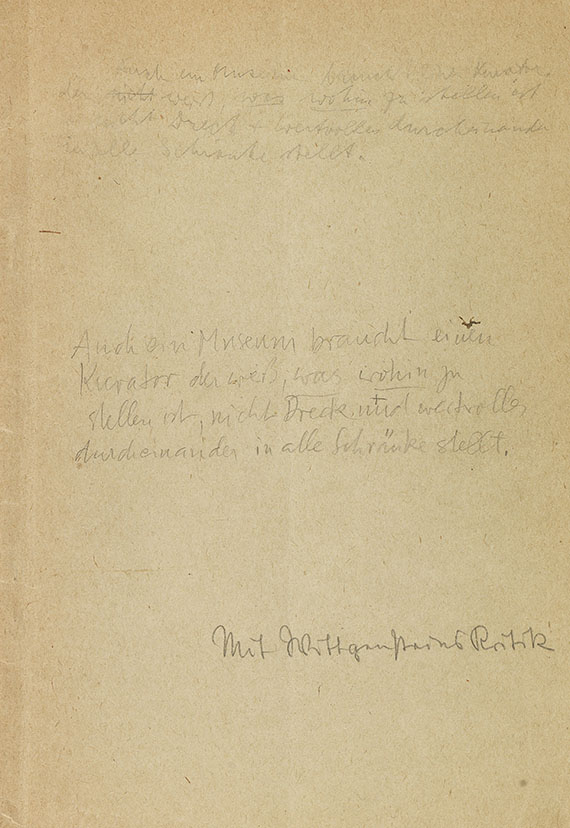 Auch ein Museum braucht Kurator
der nicht weiß, was wohin zu stellen ist
nicht Dreck + wertvolles durcheinander
in alle Schränke stellt.
Auch ein Museum braucht einen
Kurator der weiß, was wohin zu
stellen ist, nicht Dreck und wertvolles
durcheinander in alle Schränke stellt.
Mit Wittgensteins Kritik